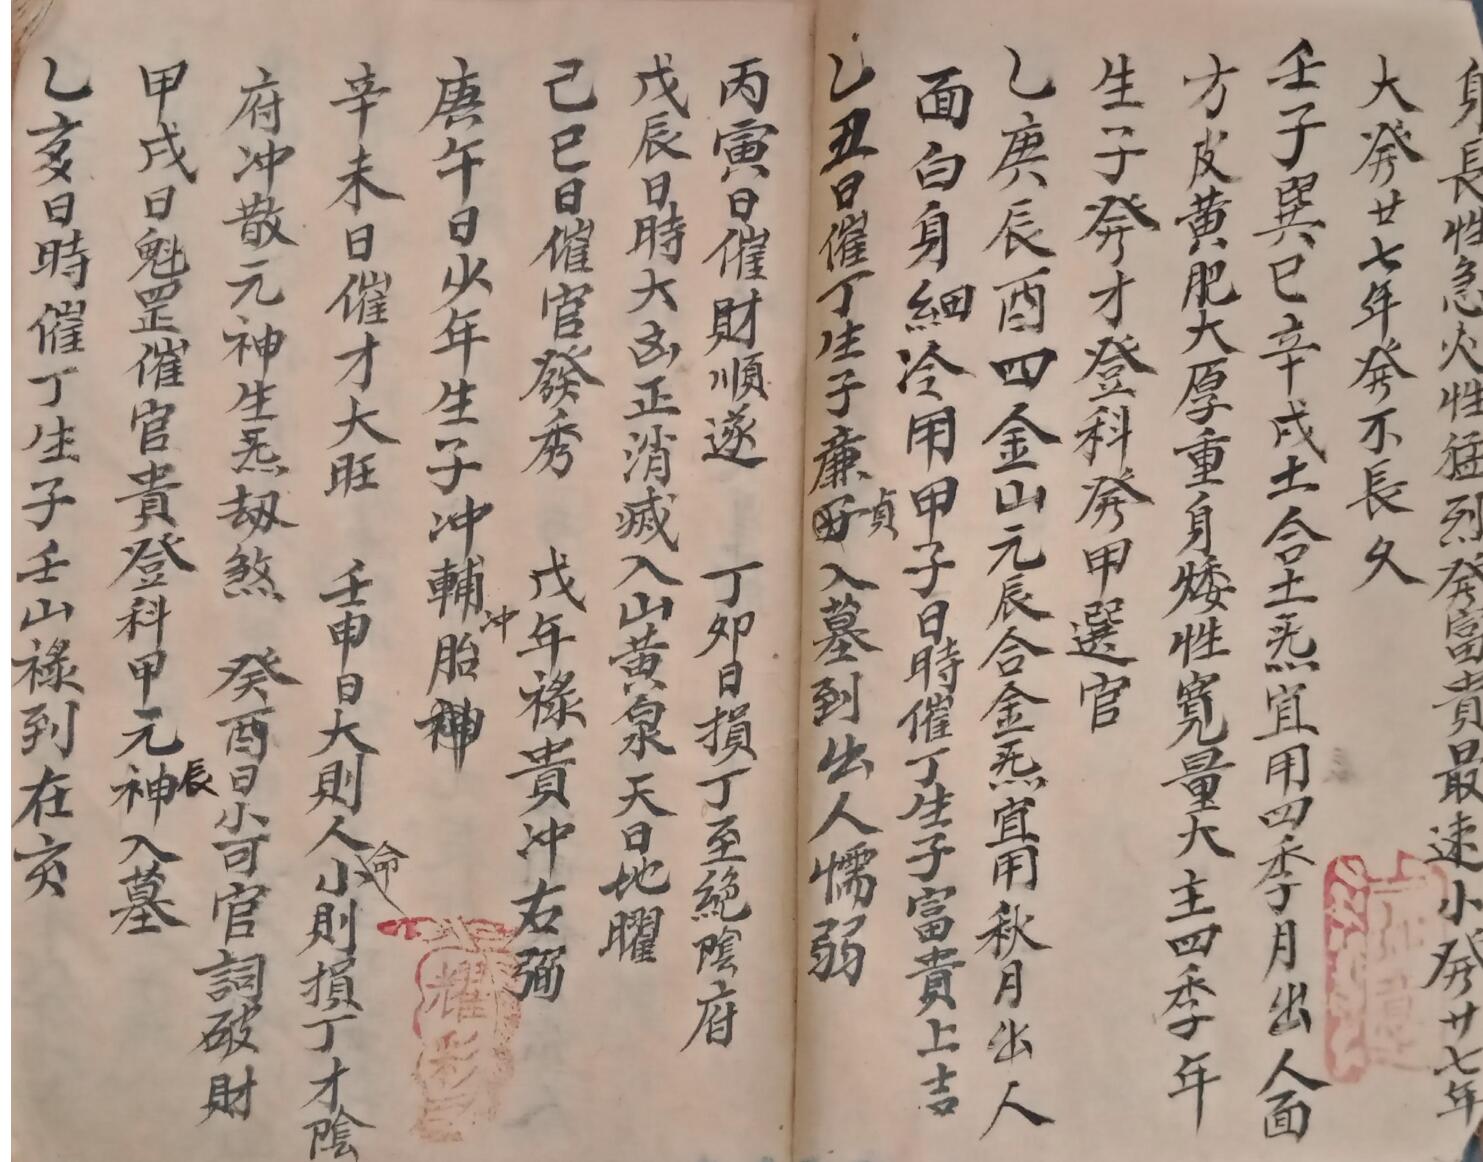 身長性急火性猛烈発富貴最速小発廿七年
大発廿七年発不長久
壬子巽巳辛戌土合土炁宜用四季月出人面
方皮黄肥大厚重身矮性寬量大主四季年
生子発才登科発甲選官
乙庚辰酉四金山元辰合金炁宜用秋月出人
面白身細冷用甲子日時催丁生子富貴上吉
乙丑日催丁生子廉貞入墓到出人懦弱
丙寅日催財順遂 丁卯日損丁至絕陰府
戊辰日時大凶正消滅入山黄泉天日地曜
己巳日催官發秀 戊年祿貴冲右弼
庚午日少年生子冲輔冲胎神
辛未日催才大旺 壬申日大則人命小則損丁才陰
府冲散元神生炁劫煞 癸酉日小可官詞破財
甲戌日魁罡催官貴登科甲元神辰入墓
乙亥日時催丁生子壬山祿到在亥
耀彩